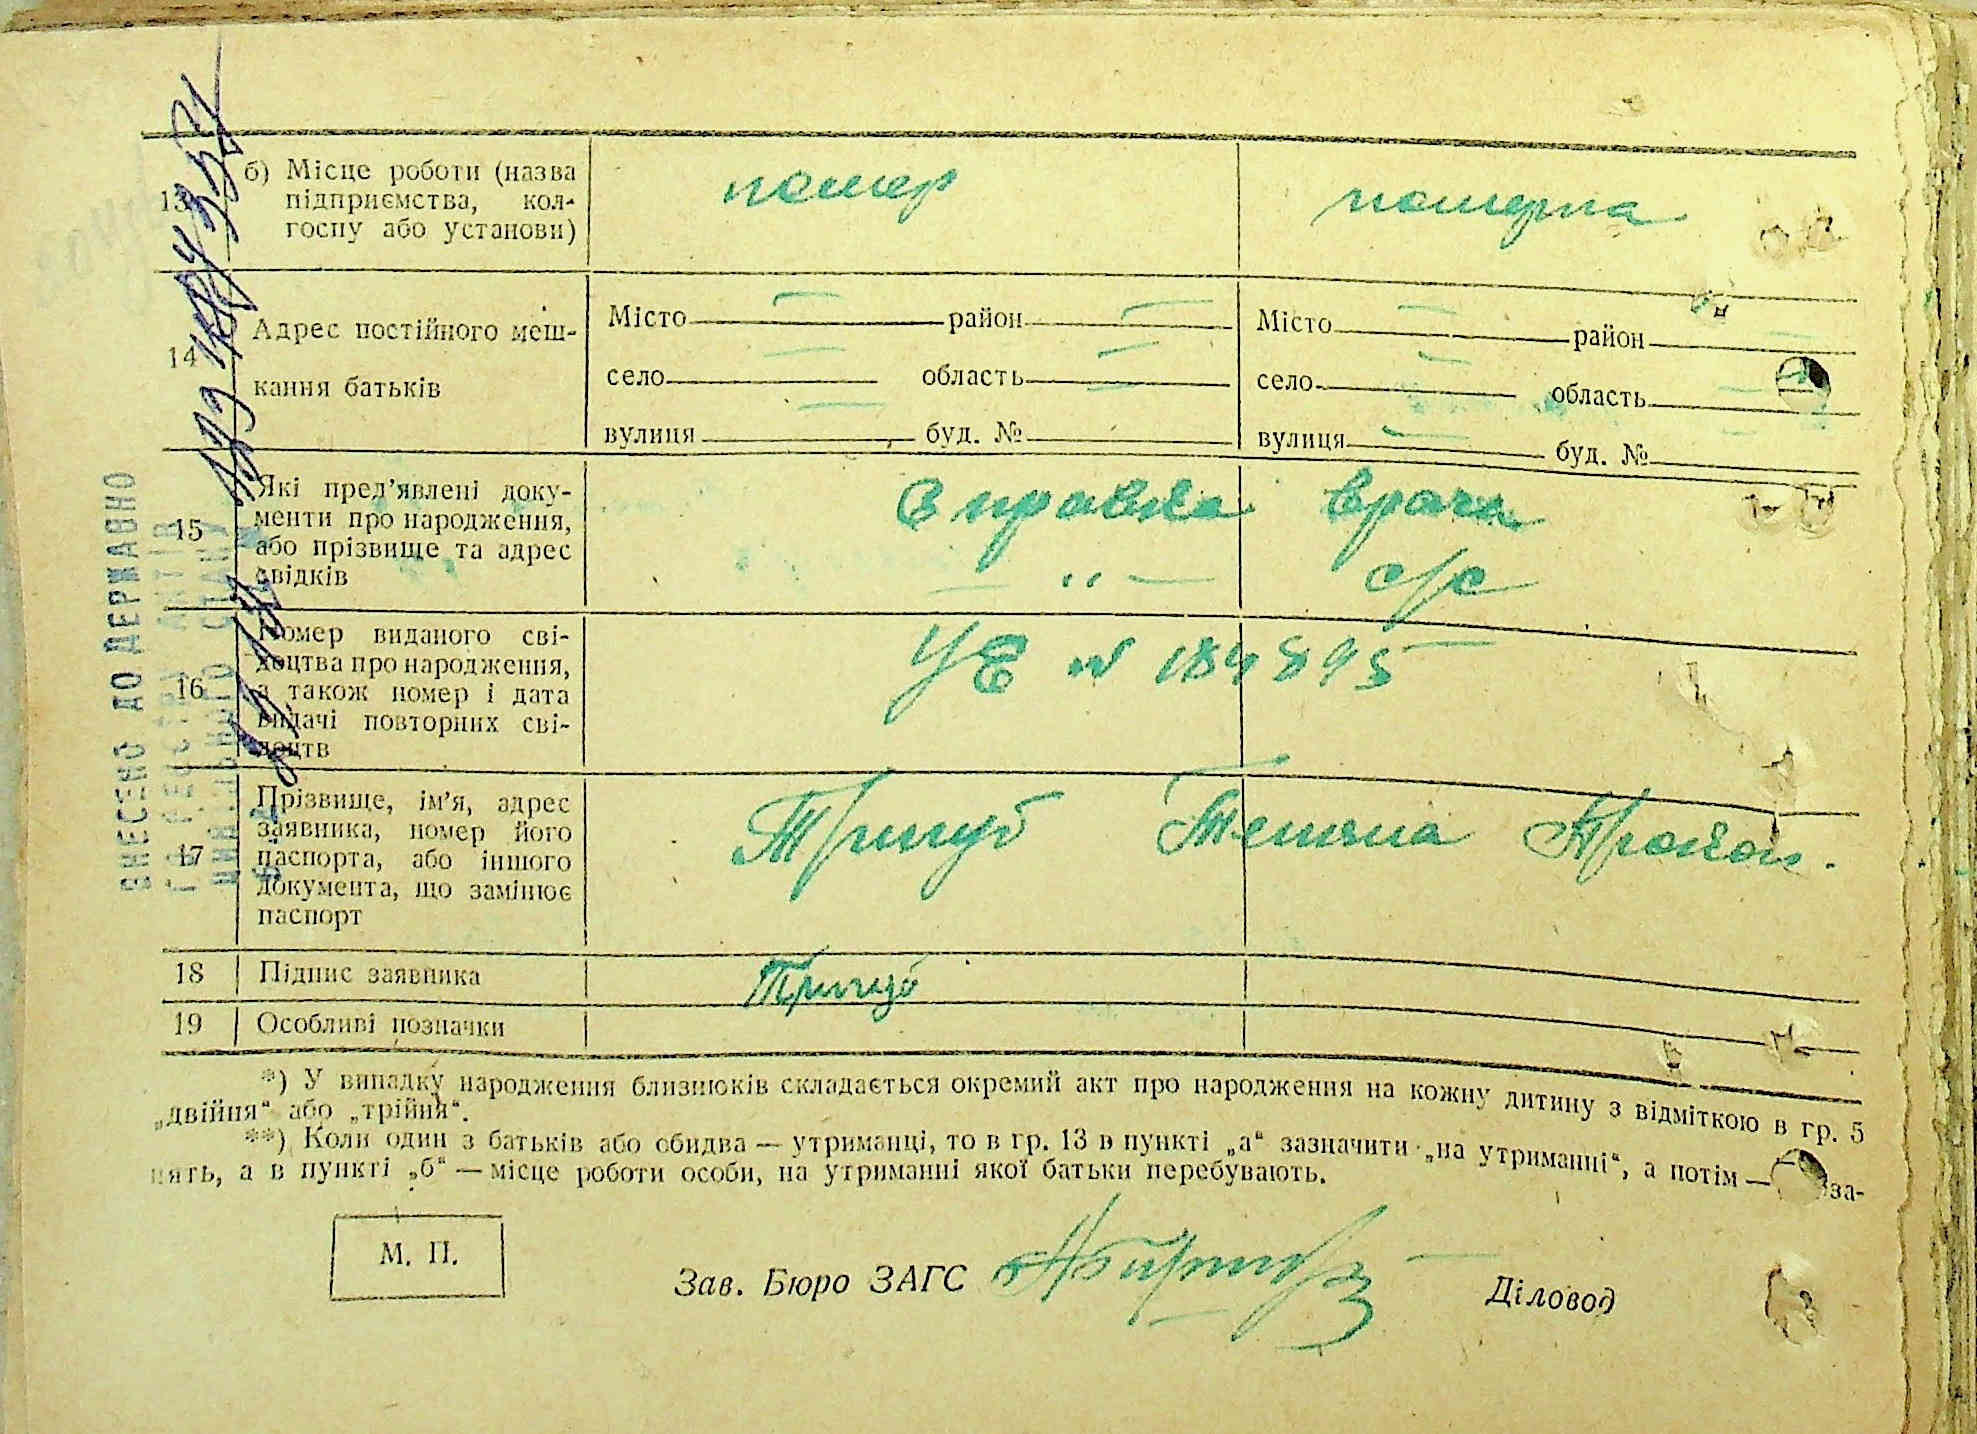 13
б) Місце роботи (назва
підприємства, кол-
госпу або установи)
помер
померла
14
Адрес постійного меш-
кання батьків
Місто район
село область
вулиця буд. №
Місто район
село область
вулиця буд. №
15
Які пред’явлені доку-
менти про народження,
або прізвище та адрес
свідків
справка врача
— „ — с/с
16
Номер виданого сві-
доцтва про народження,
а також номер і дата
видачі повторних сві-
доцтв
УЕ №
17
Прізвище, ім’я, адрес
заявника, номер його
паспорта, або іншого
документа, що замінює
паспорт
Тригуб Тетяна
18
Підпис заявника
Тригуб
19
Особливі позначки
*) У випадку народження близнюків складається окремий акт про народження на кожну дитину з відміткою в гр. 5
„двійня“ або „трійня“.
**) Коли один з батьків або обидва — утриманці, то в гр. 13 в пункті „а“ зазначити „на утриманні“, а потім — за-
нять, а в пункті „б“ — місце роботи особи, на утриманні якої батьки перебувають.
М. П.
Зав. Бюро ЗАГС
Діловод
ВНЕСЕНО ДО ДЕРЖАВНО